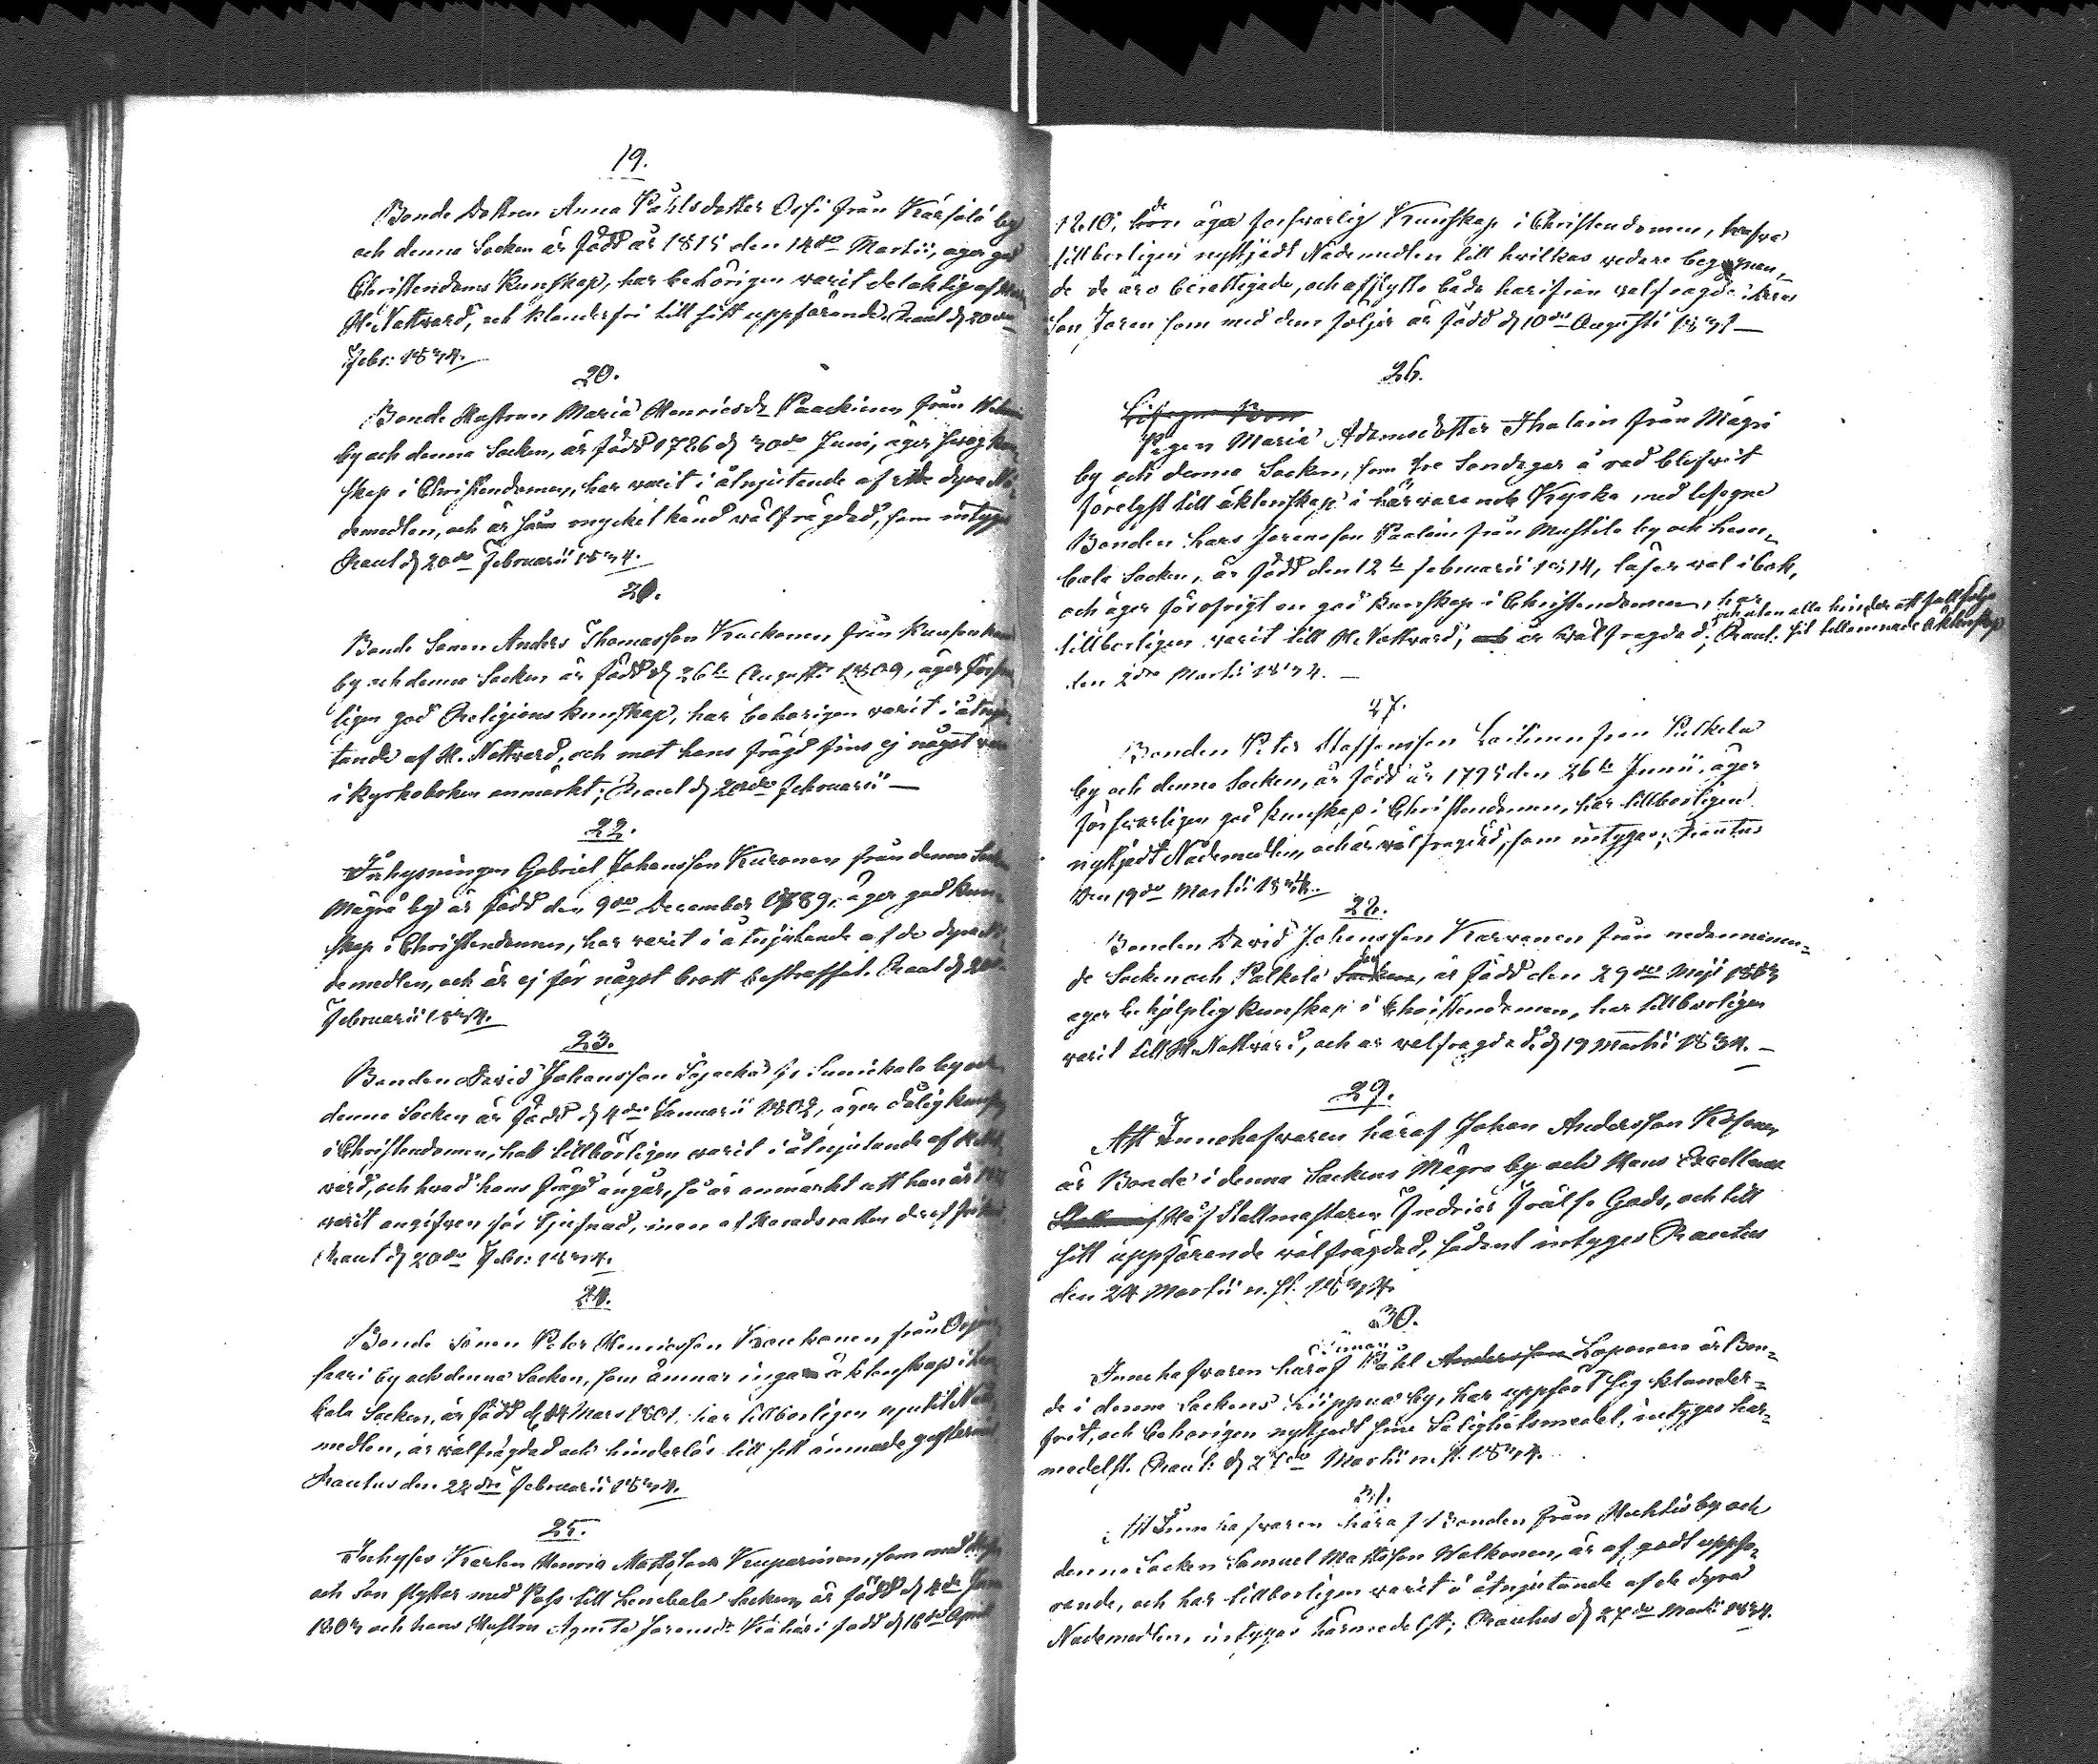 19.
Bonde Dottren Anna Påhlsdotter Orsi från Kärsälä by
och denna Socken är född år 1815 den 14de Martii, äger god
Christendoms Kunskap, har behörigen varit delaktig af
H. Nattvard, och klanderfri till sitt uppförande. Raut. d 20de
Febr: 1834.
20.
Bonde Hustrun Maria Henricsdr Paackinen från
by och denna Socken, är född 1786 d 30de Juni, äger svag kun-
skap i Christendomen, har varit i åtnjutande af de dyra Nå-
demedlen, och är mycket känd välfrägdad, som intygas
Raut d 20de Februarii 1834.
21.
Bonde Sonen Anders Thomasson Kuckonen från
by och denna Socken är född d 26te Augusti 1809, äger försvar-
ligen god Religions kunskap, har behörigen varit i åtnju-
tande af H. Nattvard, och mot hans frägd fins ej något
i kyrkoboken anmärkt; Raut d 20de Februarii —
22.
Inhysningen Gabriel Johansson Kuronen från denna
Mägrä by är född den 9de December 1789, äger god kun-
skap i Christendomen, har varit i åtnjutande af de dyra Nå-
demedlen, och är ej för något brott bestraffat. Raut d 20de
Februarii 1834.
23.
Bonden David Johansson fr. Sunikala by och
denna Socken är född d 4de Januarii 1802, äger dålig kunskap
i Christendomen, haft tillbörligen varit i åtnjutande af H. Natt-
vard, och hvad hans frägd angår, så är anmärkt att han år
varit angifven för Tjufnad, men af Häradsrätten deraf
Raut d 20de Febr: 1834.
24.
Bonde Sonen Peter Henricsson från
saari by och denna Socken, som ämnar inga äktenskap i
bala Socken, är född d Mars 1801, har tillbörligen njutit Nåde-
medlen, är välfrägdad och hinderlös till sitt ämnade giftermål
Rautus den 22dre Februarii 1834.
25.
Inhyses Karlen Henric Mattsson Kuparinen, som med
och Son flyttar med Pass till Lembala Socken, är född d 4de
1803 och hans Hustru Agneta Joransdr född d 16de April
1810, de äga försvarlig Kunskap i Christendomen, hafva
tillbörligen nyttjadt Nådemedlen till hvilkas vidare begagnan-
de de äro berättigade, och afflytta båda härifrån välfrägdade: deras
Son Jören som med dem följer är född d 10de Augusti 1831 —
26.
Pigan Maria Adamsdotter Ihalain från Mägri
by och denna Socken, som tre Söndagar å rad blifvit
förelyst till äktenskap i härvarande Kyrka med ledigne
Bonden Lars Joransson Paalain från Mustila by och Lem-
bala Socken, är född den 12te Februarii 1814, läser väl i bok,
och äger för öfrigt en god kunskap i Christendomen, har
tillbörligen varit till H. Nattvard, är välfrägdad, och utan alla hinder att fullfölja sit tillämnade Äktenskap; Raut.
den 2dre Martii 1834. —
27.
Bonden Peter Staffansson Laitinen från Palkela
by och denna Socken, är född år 1775 den 26te Junii, äger
försvarligen god kunskap i Christendomen, har tillbörligen
nyttjadt Nådemedlen, och är välfrägdad, som intygas; Rautus
Den 19de Martii 1834.
28.
Bonden David Johansson Karvanen från nedannämn-
de Socken och Palkela by, är född den 29de Maji 1803
äger behjelplig kunskap i Christendomen, har tillbörligen
varit till H. Nattvard, och är välfrägdad; d 19 Martii 1834. —
29.
Att Innehafvaren häraf Johan Andersson Kosonen
är Bonde i denna Sockens Mägra by och Hans Excellence
Hof Stallmästaren Fredrics Frälse Gods, och till
sitt uppförande välfrägdad, sådant intygas Rautus
den 24 Martii n. st. 1834.
30.
Innehafvaren häraf Påhl Simonss. Loponen är Bon-
de i denna Sockens Liippua by, har uppfört sig klander-
fritt, och behörigen nyttjadt sine Salighetsmedel, intygas här-
medelst. Raut: d 27de Martii n. st. 1834.
31.
Att Innehafvaren häraf Bonden från Huhtis by och
denna Socken Samuel Mattsson Valkonen, är af godt uppfö-
rande, och har tillbörligen varit i åtnjutande af de dyra
Nådemedlen, intygas härmedelst; Rautus d 27de Martii 1834.